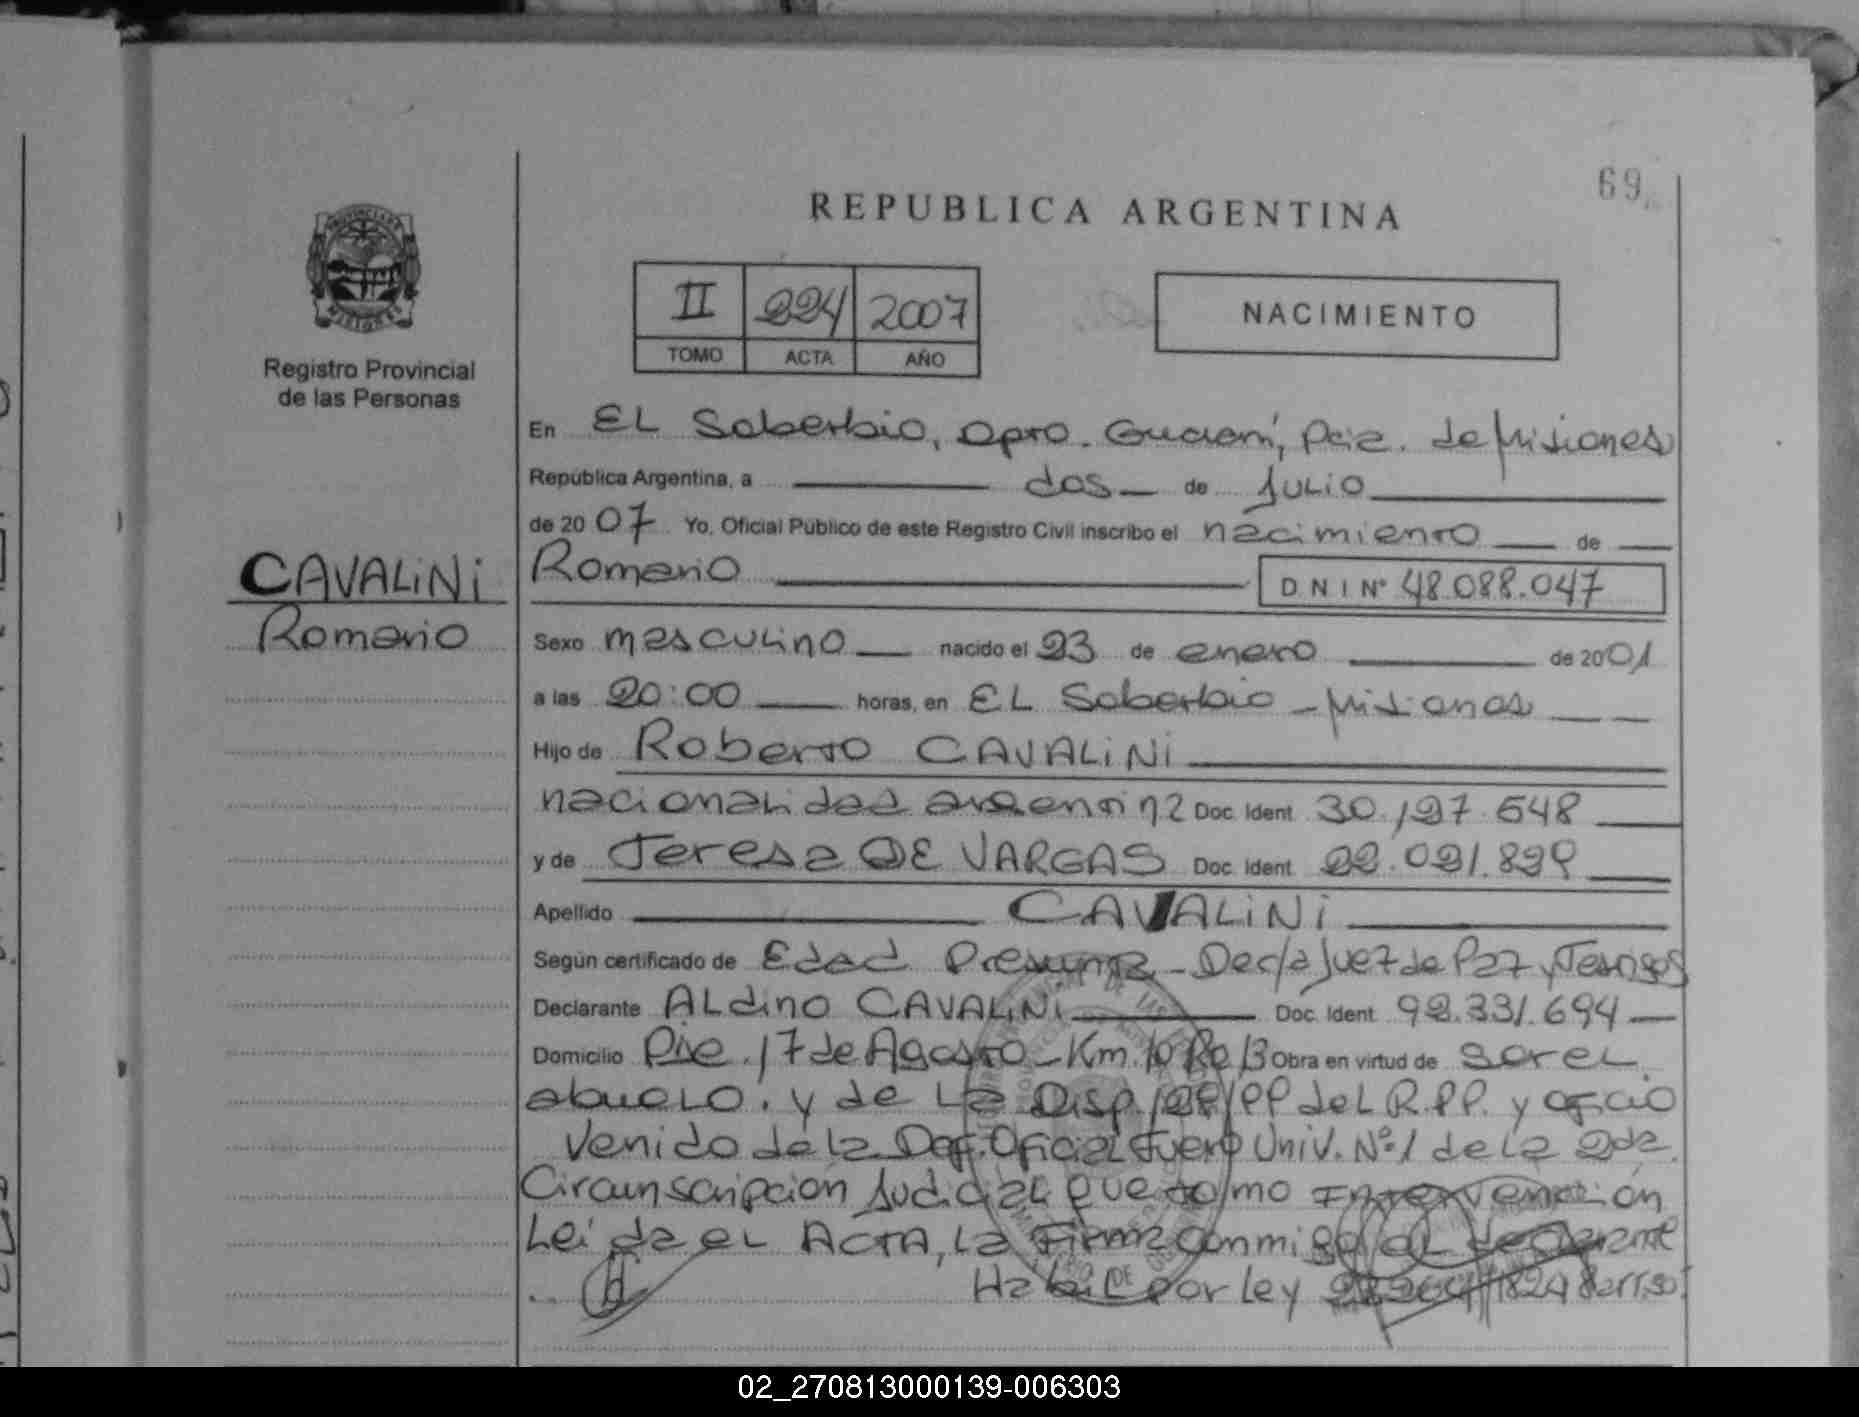 69
REPUBLICA ARGENTINA
PROVINCIA DE MISIONES
Registro Provincial
de las Personas
II 224 2007
TOMO ACTA AÑO
NACIMIENTO
En EL Soberbio, Dpto. Guaraní, Pcia. de Misiones
República Argentina, a dos de Julio
de 2007 Yo, Oficial Público de este Registro Civil inscribo el nacimiento de
CAVALiNi
Romario
Romario D N I Nº 48.088.047
Sexo masculino nacido el 23 de enero de 2001
a las 20:00 horas, en EL Soberbio - Misiones
Hijo de Roberto CAVALiNi
nacionalidad argentina Doc. Ident. 30.197.548
y de Teresa DE VARGAS Doc. Ident. 22.021.829
Apellido CAVALiNi
Según certificado de Edad Presunta - Decla Juez de Paz y Testigos
Declarante ALdino CAVALiNi Doc. Ident. 92.331.694
Domicilio Pje. 17 de Agosto - Km. 10 Obra en virtud de ser eL
abueLo. y de La Disp. deL R.P.P. y oficio
Venido de la Def. Oficial Fuero Univ. Nº 1 de la 2da.
Circunscripcion Judicial que tomo Intervención
Leida eL ACTA, La Firma conmigo eL declarante
Habil por Ley
02_270813000139-006303